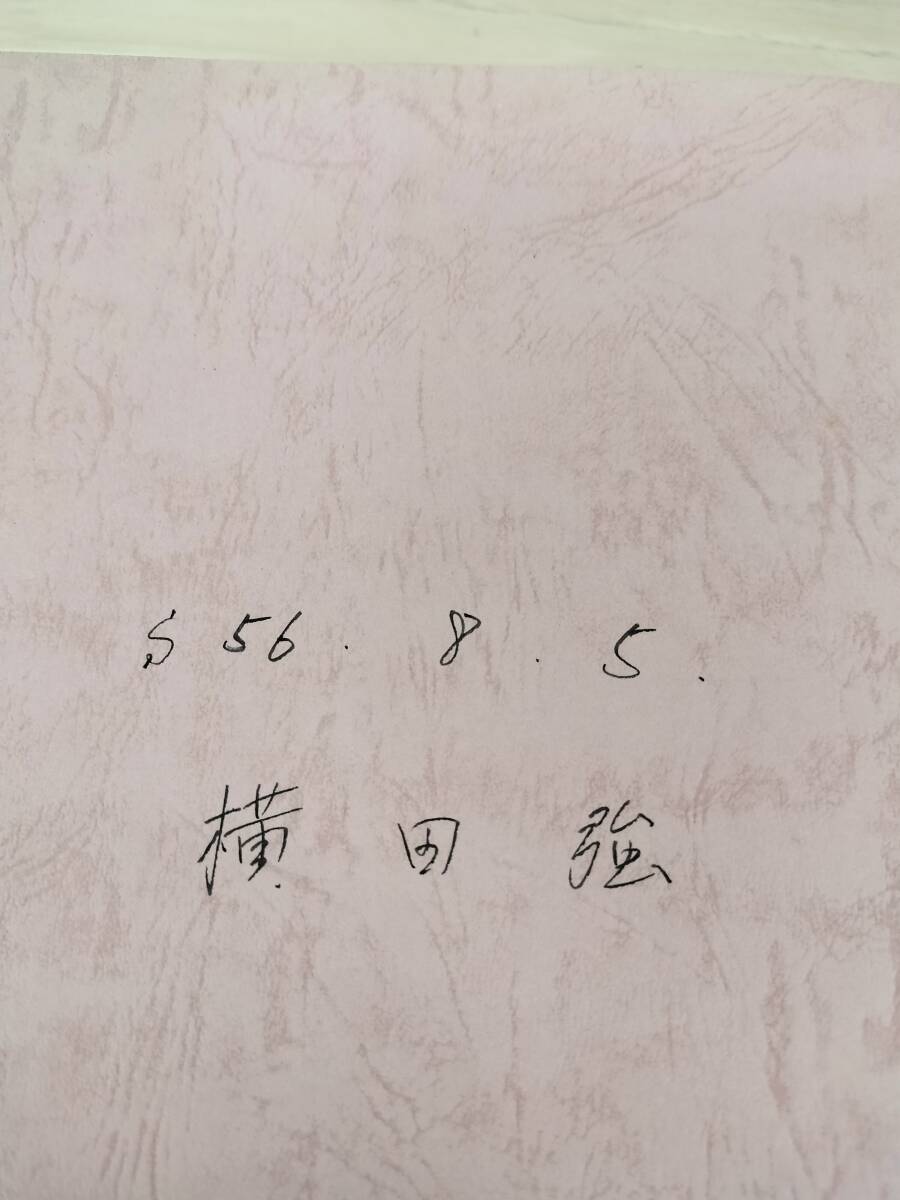 S 56. 8. 5.
横田強